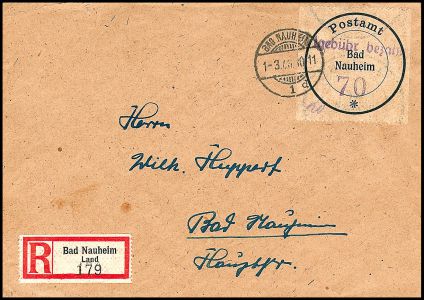 Postamt
Gebühr bezahlt
Bad
Nauheim
70
*
BAD NAUHEIM
Herrn
Wilh. Huppert
Bad Nauheim
Hauptstr.
R
Bad Nauheim
Land
179